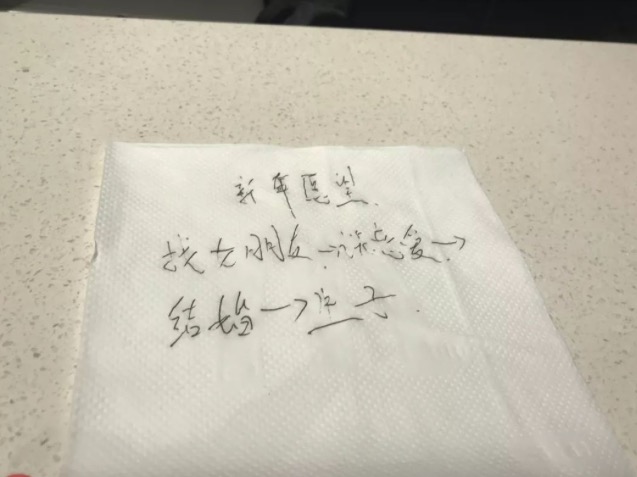 新年愿望.
找女朋友→谈恋爱→
结婚→生子.